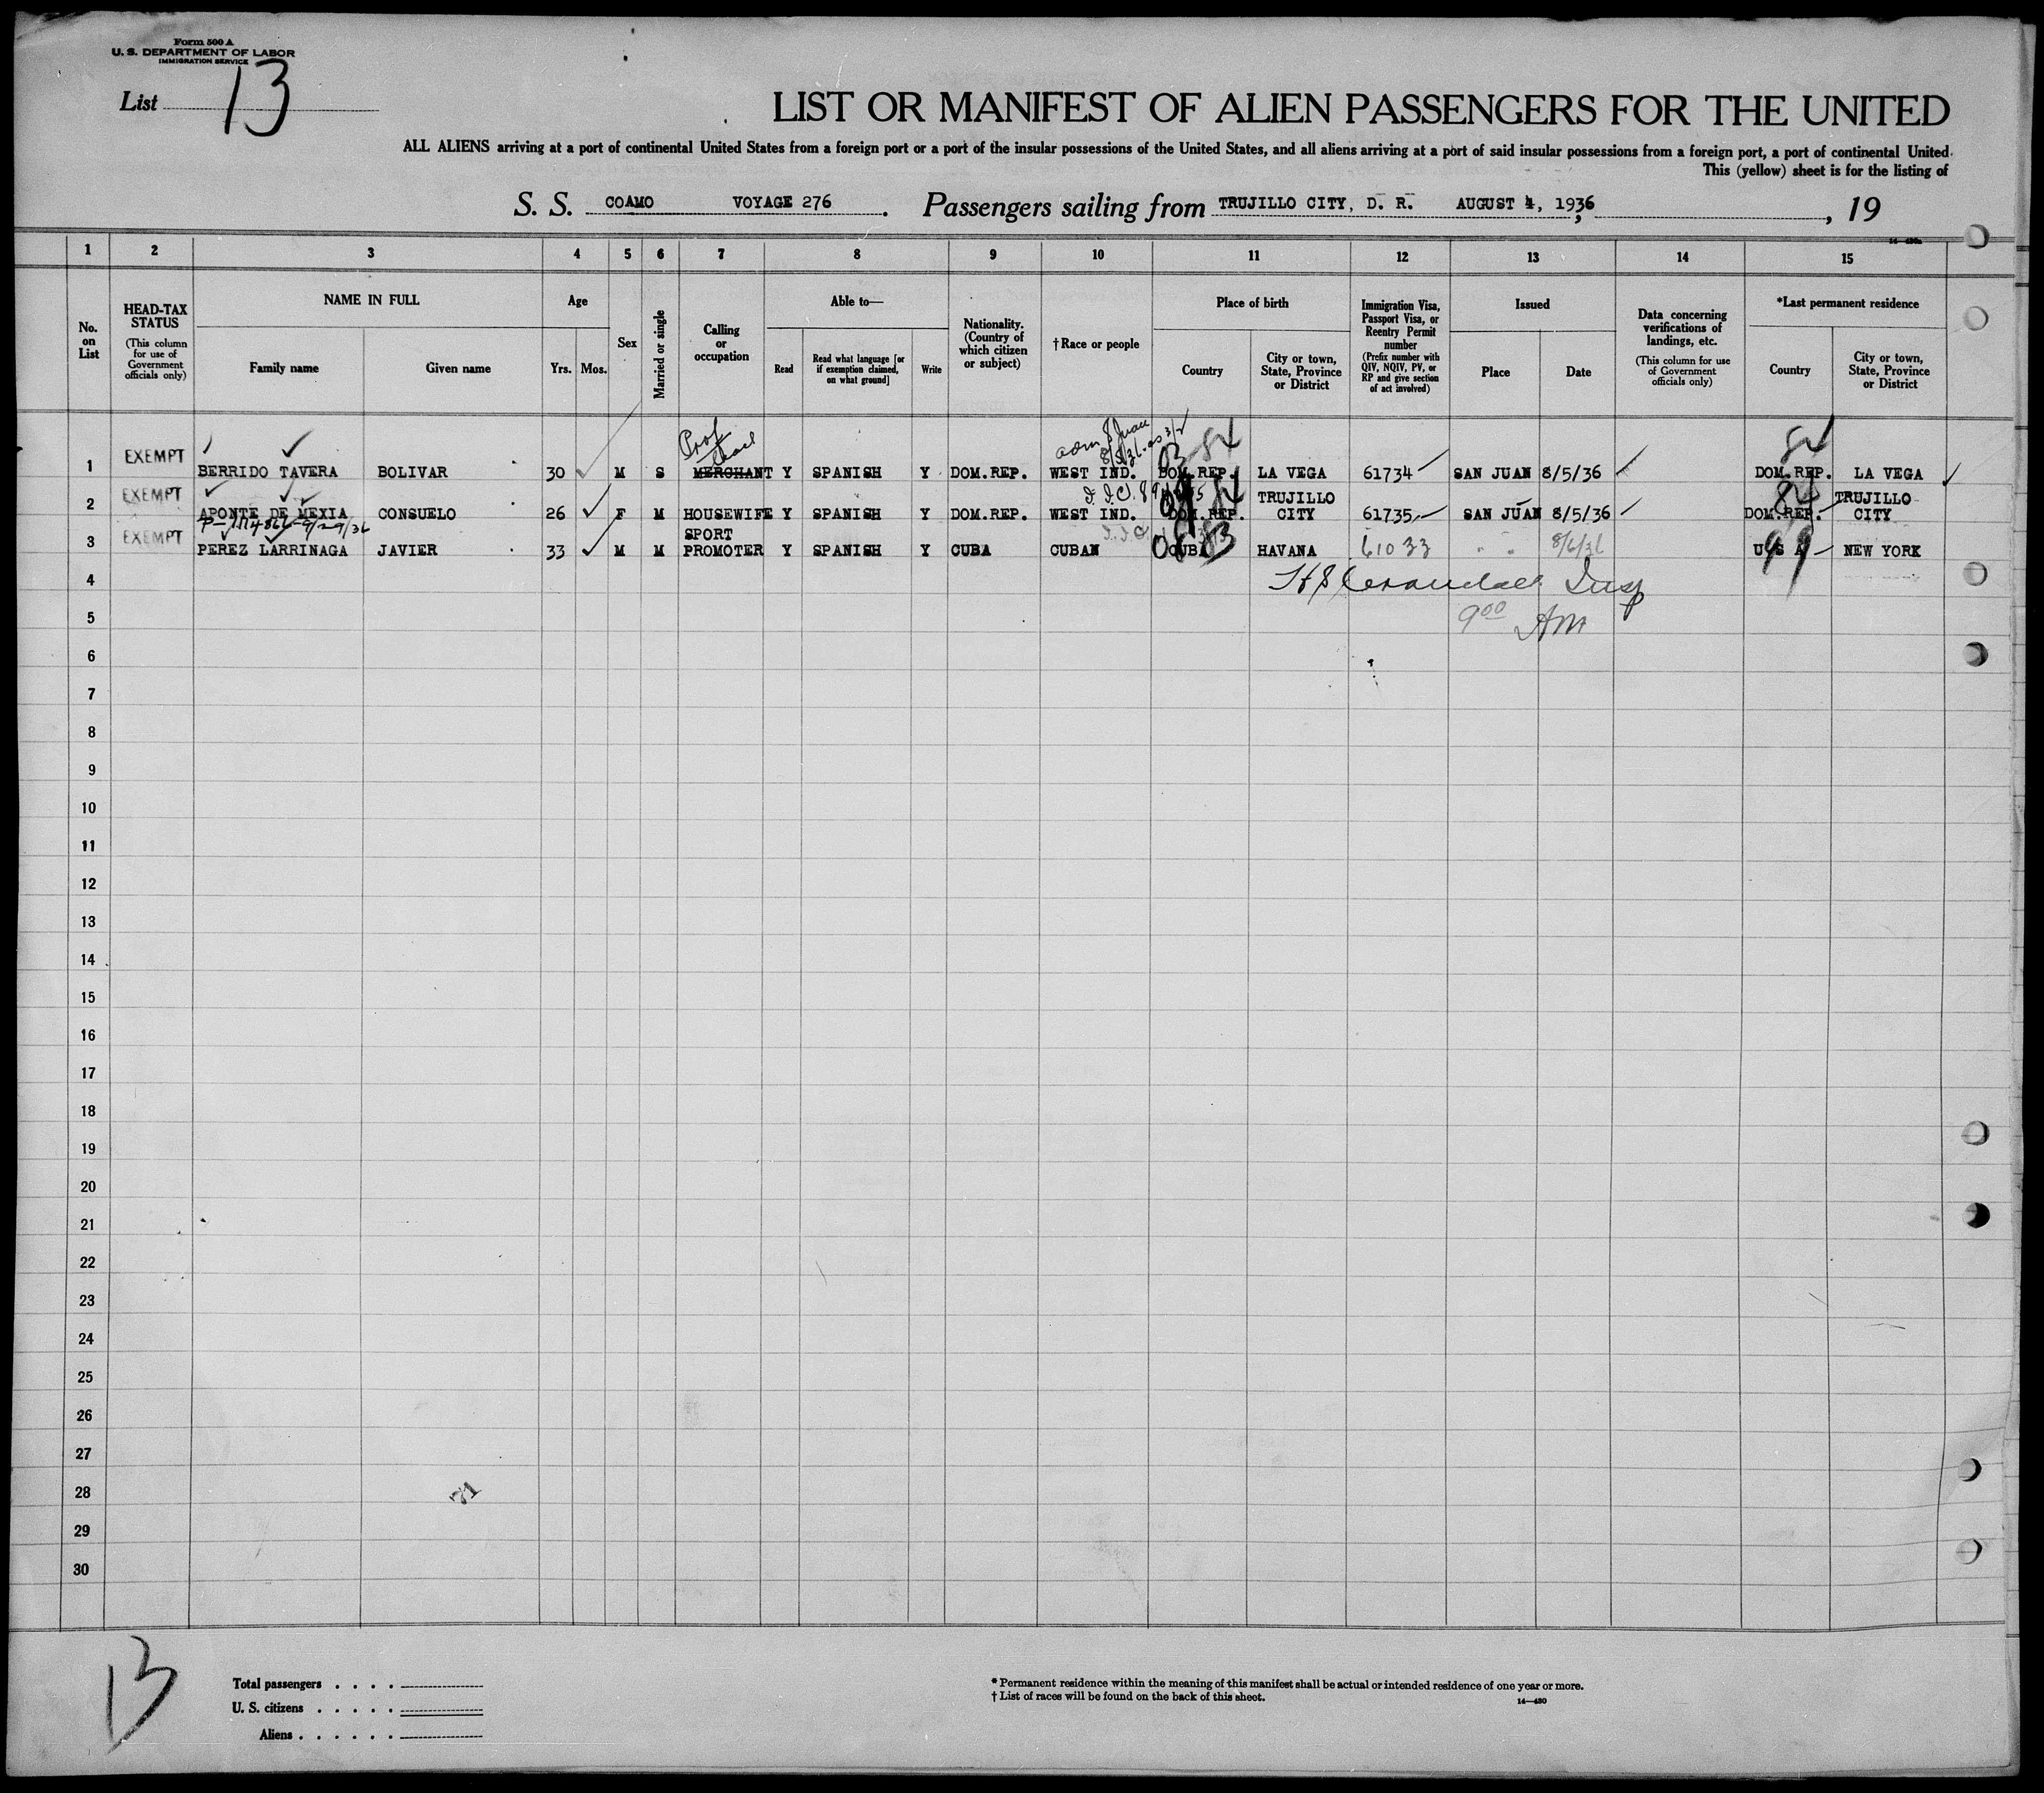 Form 500 A
U. S. DEPARTMENT OF LABOR
IMMIGRATION SERVICE
List 13
LIST OR MANIFEST OF ALIEN PASSENGERS FOR THE UNITED
ALL ALIENS arriving at a port of continental United States from a foreign port or a port of the insular possessions of the United States, and all aliens arriving at a port of said insular possessions from a foreign port, a port of continental United
This (yellow) sheet is for the listing of
S. S. COAMO VOYAGE 276. Passengers sailing from TRUJILLO CITY, D. R. AUGUST 4, 1936, , 19
1 2 3 4 5 6 7 8 9 10 11 12 13 14 15
No. on List
HEAD-TAX STATUS (This column for use of Government officials only)
NAME IN FULL
Family name Given name
Age
Yrs. Mos.
Sex
Married or single
Calling or occupation
Able to—
Read Read what language [or if exemption claimed, on what ground] Write
Nationality. (Country of which citizen or subject)
†Race or people
Place of birth
Country City or town, State, Province or District
Immigration Visa, Passport Visa, or Reentry Permit number (Prefix number with QIV, NQIV, PV, or RP and give section of act involved)
Issued
Place Date
Data concerning verifications of landings, etc. (This column for use of Government officials only)
*Last permanent residence
Country City or town, State, Province or District
Prof
84 84
1 EXEMPT BERRIDO TAVERA BOLIVAR 30 M S MERCHANT Y SPANISH Y DOM.REP. WEST IND. DOM.REP. LA VEGA 61734 SAN JUAN 8/5/36 DOM.REP. LA VEGA
2 EXEMPT APONTE DE MEXIA CONSUELO 26 F M HOUSEWIFE Y SPANISH Y DOM.REP. WEST IND. DOM.REP. TRUJILLO CITY 61735 SAN JUAN 8/5/36 DOM.REP. TRUJILLO CITY
3 EXEMPT PEREZ LARRINAGA JAVIER 33 M M SPORT PROMOTER Y SPANISH Y CUBA CUBAN CUBA HAVANA 61033 " " 8/6/36 U S A NEW YORK
99
4
Insp
5
9 00 AM
6
7
8
9
10
11
12
13
14
15
16
17
18
19
20
21
22
23
24
25
26
27
28
71
29
30
13
Total passengers . . . .
U. S. citizens . . . . .
Aliens . . . . . .
* Permanent residence within the meaning of this manifest shall be actual or intended residence of one year or more.
† List of races will be found on the back of this sheet.
14—430